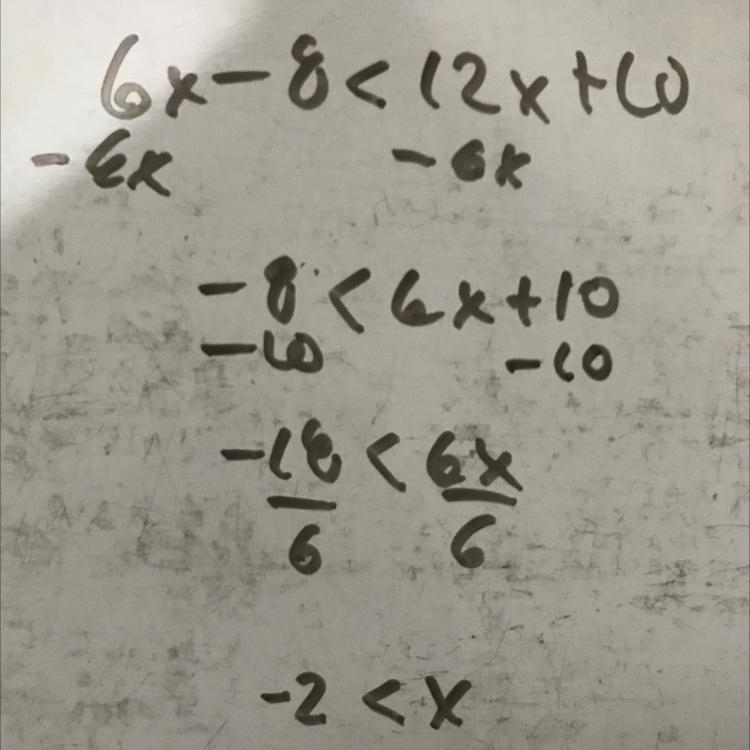 6x - 8 < 12x + 10
- 6x - 6x
- 8 < 6x + 10
- 10 - 10
-18 < 6x
6 6
-2 < x